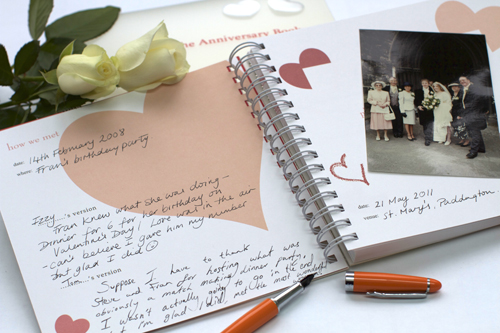 The Anniversary Book
how we met
date: 14th February 2008
where: Fran's birthday party
Izzy 's version
Fran knew what she was doing -
Dinner for 6 for her birthday on
Valentine's Day! Love was in the air
- Can't believe I gave him my number
but glad I did ☺
Tom 's version
Suppose I have to thank
Steve and Fran for hosting what was
obviously a match making dinner party.
I wasn't actually going to go in the end
but I'm glad I did, met the most wonderful
date: 21 May 2011
venue: St. Mary's, Paddington